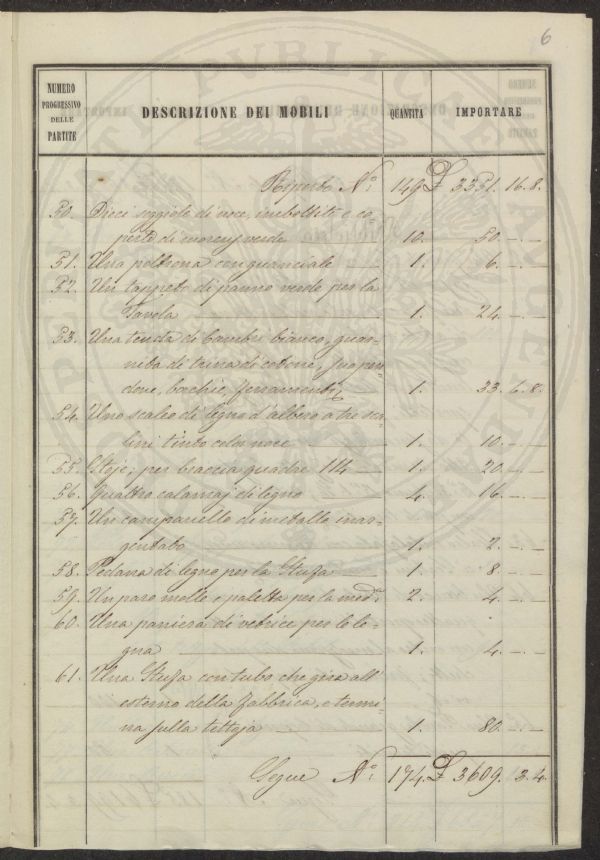 6
NUMERO PROGRESSIVO DELLE PARTITE DESCRIZIONE DEI MOBILI QUANTITÀ IMPORTARE
Riporto N.° 149 £ 3351. 16. 8.
50. Dieci seggiole di noce, imbottite e co
perte di verde 10. 50. -. -
51. Una poltrona con guanciale 1. 6. -. -
52. Un tappeto di panno verde per la
Tavola 1. 24. -. -
53. Una tenda di bianco, guar
nita di trina di cotone,
borchie, ferramenti 1. 33. 6. 8.
54. Uno scaleo di legno d'albero a tre sca
lini tinto color noce 1. 10. -. -
55. Stoje; per braccia quadre 114 1. 20. -. -
56. Quattro calamaj di legno 4. 16. -. -
57. Un campanello di metallo inar
gentato 1. 2. -. -
58. Pedana di legno per la Stufa 1. 8. -. -
59. Un paro molle e palette per la med.a 2. 4. -. -
60. Una paniera di vetrice per le le-
gna 1. 4. -. -
61. Una Stufa con tubo che gira all'
esterno della fabbrica, e termi
na sulla tettoja 1. 80. -. -
Segue N.° 174. £ 3609. 3. 4.